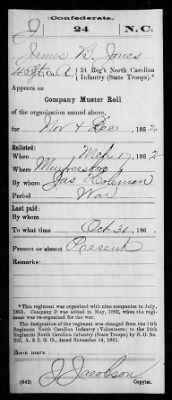 Confederate.
J | 24 | N. C.
James B. Jones
24 Reg't North Carolina
Infantry (State Troops).*
Appears on
Company Muster Roll
of the organization named above,
for Nov & Dec, 1862.
Enlisted:
When Mch 17, 1862
Where Murfreesboro
By whom Jas Holeman
Period War
Last paid:
By whom
To what time Oct 31, 186 .
Present or absent Present
Remarks:
*This regiment was organized with nine companies in July,
1861. Company was added in May, 1862, when the regi-
ment was re-organized for the war.
The designation of the regiment was changed from the 14th
Regiment North Carolina Infantry (Volunteers) to the 24th
Regiment North Carolina Infantry (State Troops) by S. O. No.
222, A. & I. G. O., dated November 14, 1861.
Book mark:
J Jacobson
(642) Copyist.